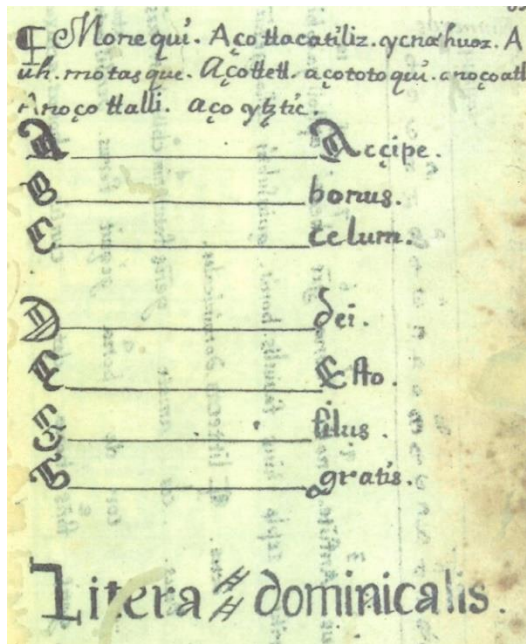 ¶ Monequi. Aço tlacatiliz. ycnahuoz. A
uh. motasque. Açotletl. açototoqui. anoçoatl
Anoço tlalli. aço ytztic.
A Accipe.
B bonus.
C celum.
D dei.
E Esto.
filus.
G gratis.
Litera dominicalis.